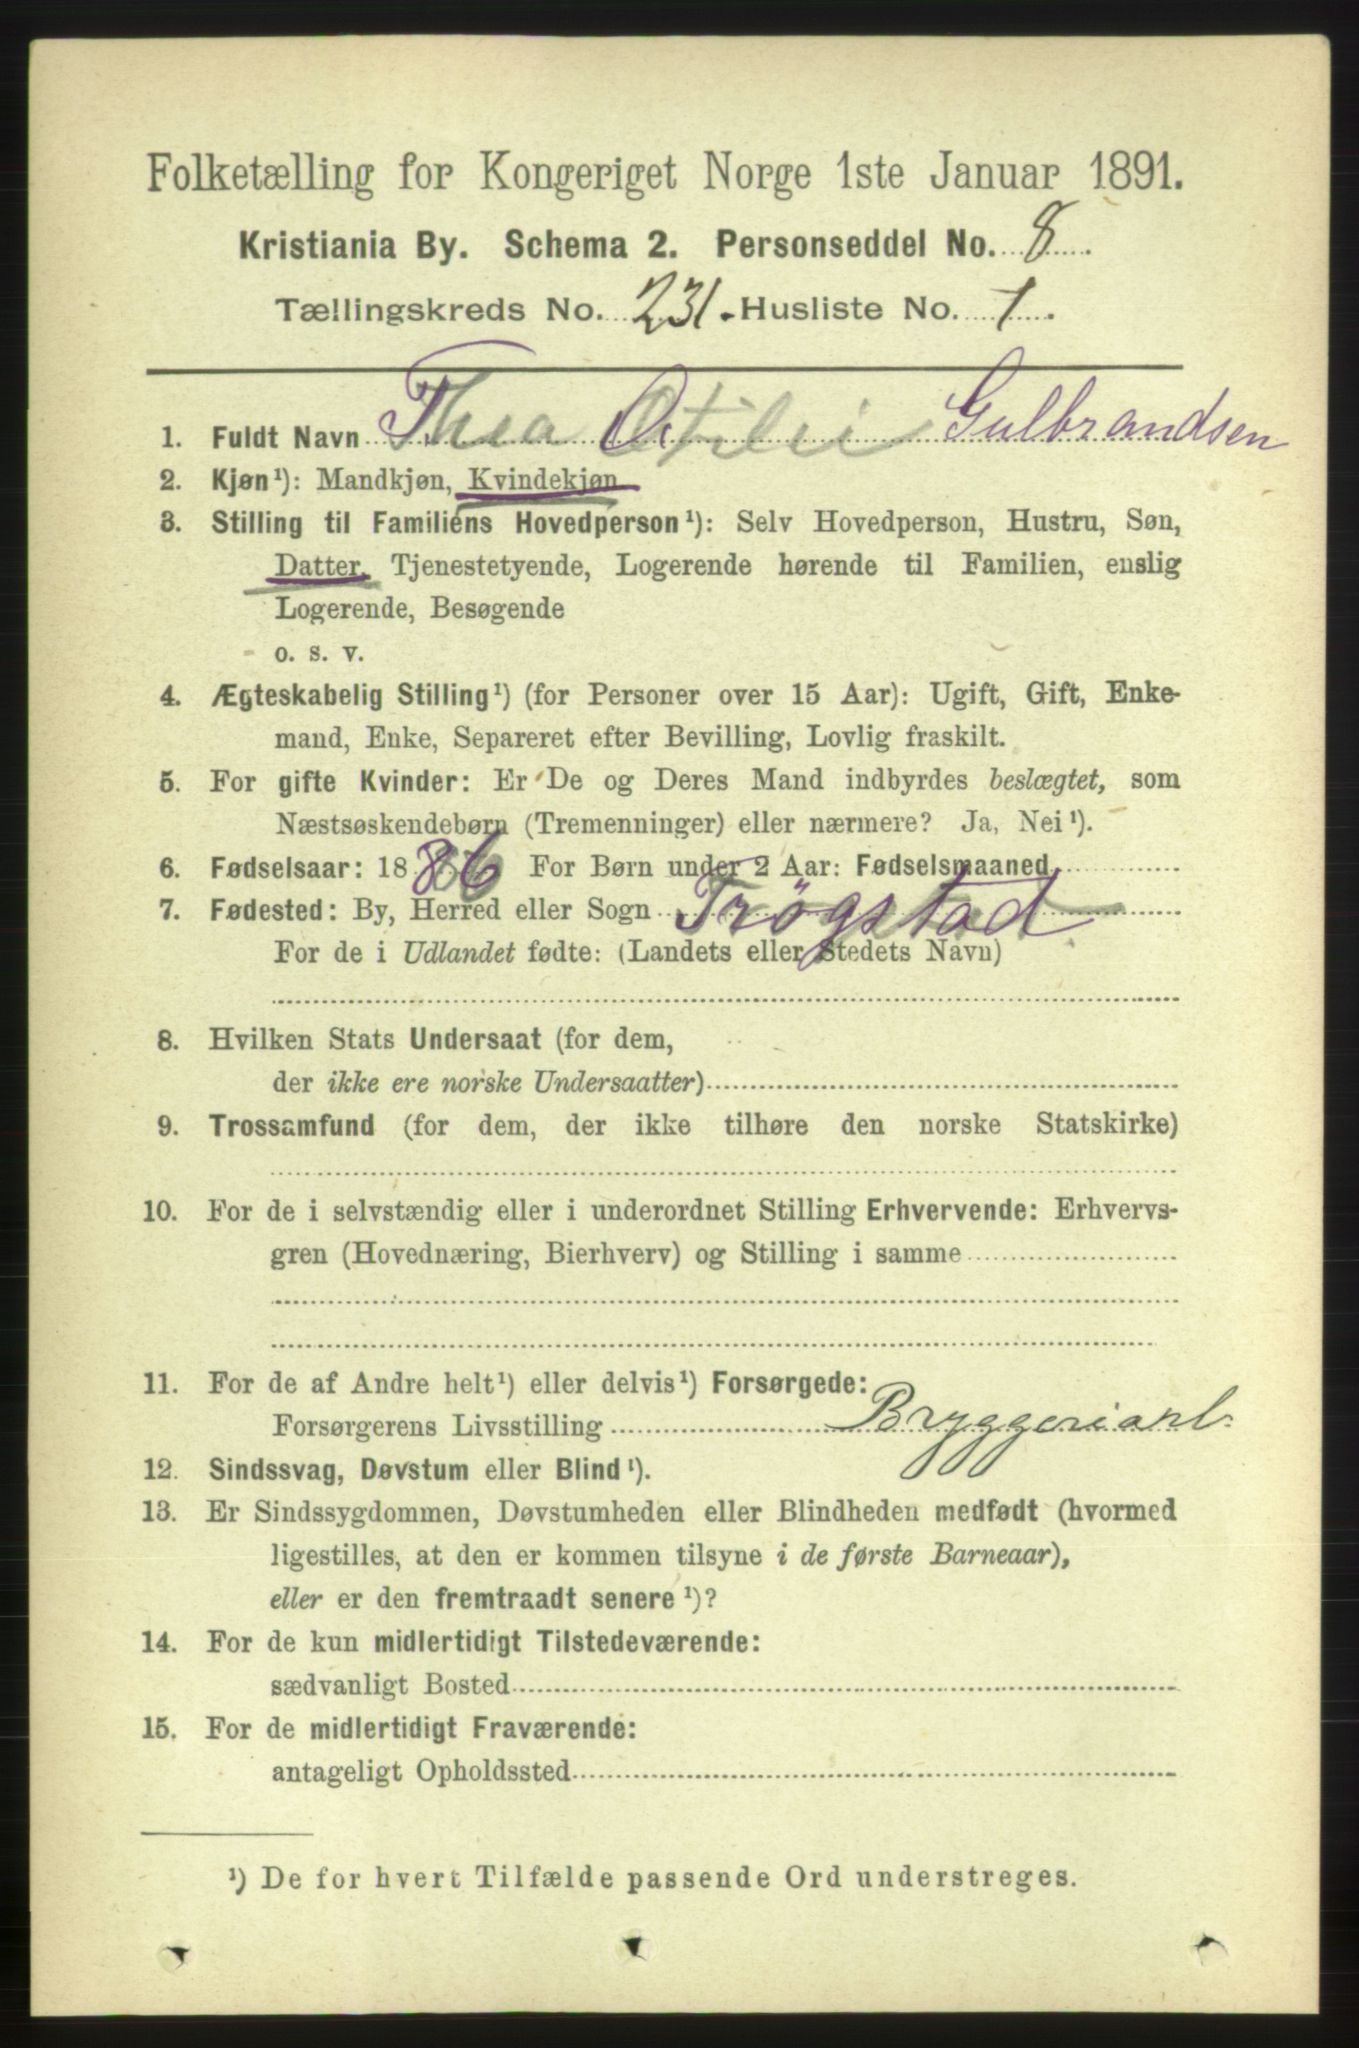 Folketælling for Kongeriget Norge 1ste Januar 1891.
Kristiania By. Schema 2. Personseddel No. 8.
Tællingskreds No. 231. Husliste No. 1.
1. Fuldt Navn Thea Otilei Gulbrandsen
2. Kjøn¹): Mandkjøn, Kvindekjøn
3. Stilling til Familiens Hovedperson¹): Selv Hovedperson, Hustru, Søn,
Datter, Tjenestetyende, Logerende hørende til Familien, enslig
Logerende, Besøgende
o. s. v.
4. Ægteskabelig Stilling¹) (for Personer over 15 Aar): Ugift, Gift, Enke-
mand, Enke, Separeret efter Bevilling, Lovlig fraskilt.
5. For gifte Kvinder: Er De og Deres Mand indbyrdes beslægtet, som
Næstsøskendebørn (Tremenninger) eller nærmere? Ja, Nei¹).
6. Fødselsaar: 1886 For Børn under 2 Aar: Fødselsmaaned
7. Fødested: By, Herred eller Sogn Trøgstad
For de i Udlandet fødte: (Landets eller Stedets Navn)
8. Hvilken Stats Undersaat (for dem,
der ikke ere norske Undersaatter)
9. Trossamfund (for dem, der ikke tilhøre den norske Statskirke)
10. For de i selvstændig eller i underordnet Stilling Erhvervende: Erhvervs-
gren (Hovednæring, Bierhverv) og Stilling i samme
11. For de af Andre helt¹) eller delvis¹) Forsørgede:
Forsørgerens Livsstilling Bryggeriarb.
12. Sindssvag, Døvstum eller Blind¹).
13. Er Sindssygdommen, Døvstumheden eller Blindheden medfødt (hvormed
ligestilles, at den er kommen tilsyne i de første Barneaar),
eller er den fremtraadt senere¹)?
14. For de kun midlertidigt Tilstedeværende:
sædvanligt Bosted
15. For de midlertidigt Fraværende:
antageligt Opholdssted
¹) De for hvert Tilfælde passende Ord understreges.